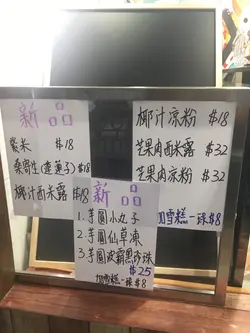 新品
紫米 $18
桑寄生(蓮子) $18
椰汁西米露 $18
椰汁凉粉 $18
芒果肉西米露 $32
芒果肉凉粉 $32
加雪糕一球$8
新品
1. 芋圓小丸子
2. 芋圓仙草凍
3. 芋圓波霸黑珍珠
$25
加雪糕一球$8